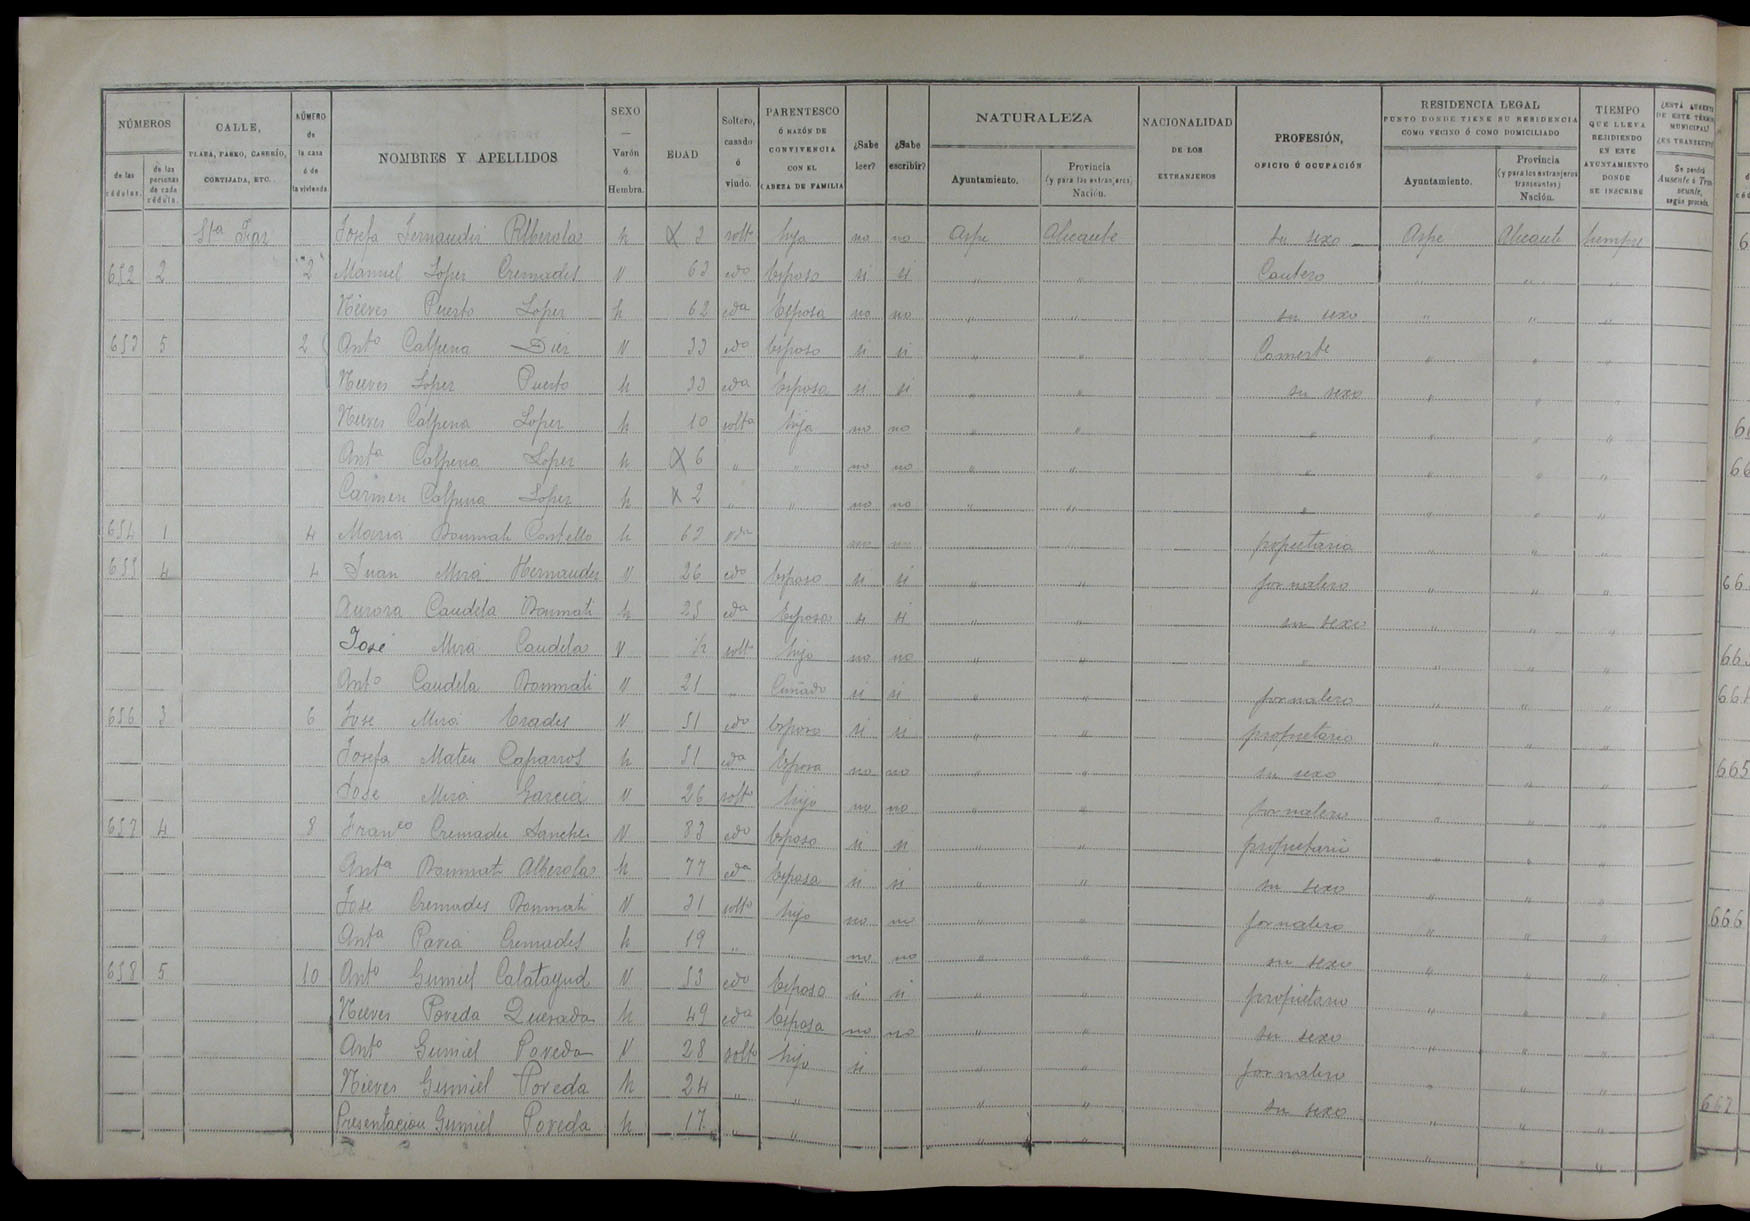 NÚMEROS | CALLE, PLAZA, PASEO, CASERÍO, CORTIJADA, ETC. | NÚMERO de la casa ó de la vivienda | NOMBRES Y APELLIDOS | SEXO — Varón ó Hembra. | EDAD | Soltero, casado ó viudo. | PARENTESCO Ó RAZÓN DE CONVIVENCIA CON EL CABEZA DE FAMILIA | ¿Sabe leer? | ¿Sabe escribir? | NATURALEZA | NACIONALIDAD DE LOS EXTRANJEROS | PROFESIÓN, OFICIO Ú OCUPACIÓN | RESIDENCIA LEGAL PUNTO DONDE TIENE SU RESIDENCIA COMO VECINO Ó COMO DOMICILIADO | TIEMPO QUE LLEVA RESIDIENDO EN ESTE AYUNTAMIENTO DONDE SE INSCRIBE | ¿ESTÁ AUSENTE DE ESTE TÉRMINO MUNICIPAL?
de las cédulas. | de las personas de cada cédula. | Ayuntamiento. | Provincia (y para los extranjeros) Nación. | Ayuntamiento. | Provincia (y para los extranjeros transeuntes) Nación. | Se pondrá Ausente ó Transeunte, según proceda.
Sta Faz | Josefa Fernandis Alberola | h | X 2 | solta | hija | no | no | Aspe | Alicante | su sexo | Aspe | Alicante | siempre
652 | 2 | 2 | Manuel Lopez Cremades | V | 63 | cdo | Esposo | si | si | " | " | Cantero | " | " | "
Nieves Puerto Lopez | h | 62 | cda | Esposa | no | no | " | " | su sexo | " | " | "
653 | 5 | 2 | Anto Calpena Diez | V | 33 | cdo | Esposo | si | si | " | " | Comerte | " | " | "
Nieves Lopez Puerto | h | 33 | cda | Esposa | si | si | " | " | su sexo | " | " | "
Nieves Calpena Lopez | h | 10 | solta | hija | no | no | " | " | " | " | " | "
Anta Calpena Lopez | h | X 6 | " | " | no | no | " | " | " | " | " | "
Carmen Calpena Lopez | h | X 2 | " | " | no | no | " | " | " | " | " | "
654 | 1 | 4 | Maria Bonmati Cantello | h | 62 | vda | no | no | " | " | propietaria | " | " | "
655 | 4 | 4 | Juan Mira Hernandez | V | 26 | cdo | Esposo | si | si | " | " | jornalero | " | " | "
Aurora Candela Bonmati | h | 25 | cda | Esposa | si | si | " | " | su sexo | " | " | "
José Mira Candela | V | ½ | solt | hijo | no | no | " | " | " | " | " | "
Anto Candela Bonmati | V | 21 | " | Cuñado | si | si | " | " | jornalero | " | " | "
656 | 3 | 6 | Jose Mira Erades | V | 51 | cdo | Esposo | si | si | " | " | propietario | " | " | "
Josefa Mateu Caparros | h | 51 | cda | Esposa | no | no | " | " | su sexo | " | " | "
Jose Mira Garcia | V | 26 | solto | hijo | no | no | " | " | jornalero | " | " | "
657 | 4 | 8 | Franco Cremades Sanchez | V | 83 | cdo | Esposo | si | si | " | " | propietario | " | " | "
Anta Bonmati Alberola | h | 77 | cda | Esposa | si | si | " | " | su sexo | " | " | "
Jose Cremades Bonmati | V | 31 | solto | hijo | no | no | " | " | jornalero | " | " | "
Anta Pavia Cremades | h | 19 | " | " | no | no | " | " | su sexo | " | " | "
658 | 5 | 10 | Anto Gumiel Calatayud | V | 53 | cdo | Esposo | si | si | " | " | propietario | " | " | "
Nieves Poveda Quesada | h | 49 | cda | Esposa | no | no | " | " | su sexo | " | " | "
Anto Gumiel Poveda | V | 28 | solto | hijo | si | " | " | jornalero | " | " | "
Nieves Gumiel Poveda | h | 24 | " | " | " | " | su sexo | " | " | "
Presentacion Gumiel Poveda | h | 17 | " | " | " | " | " | " | " | "
665
666
667